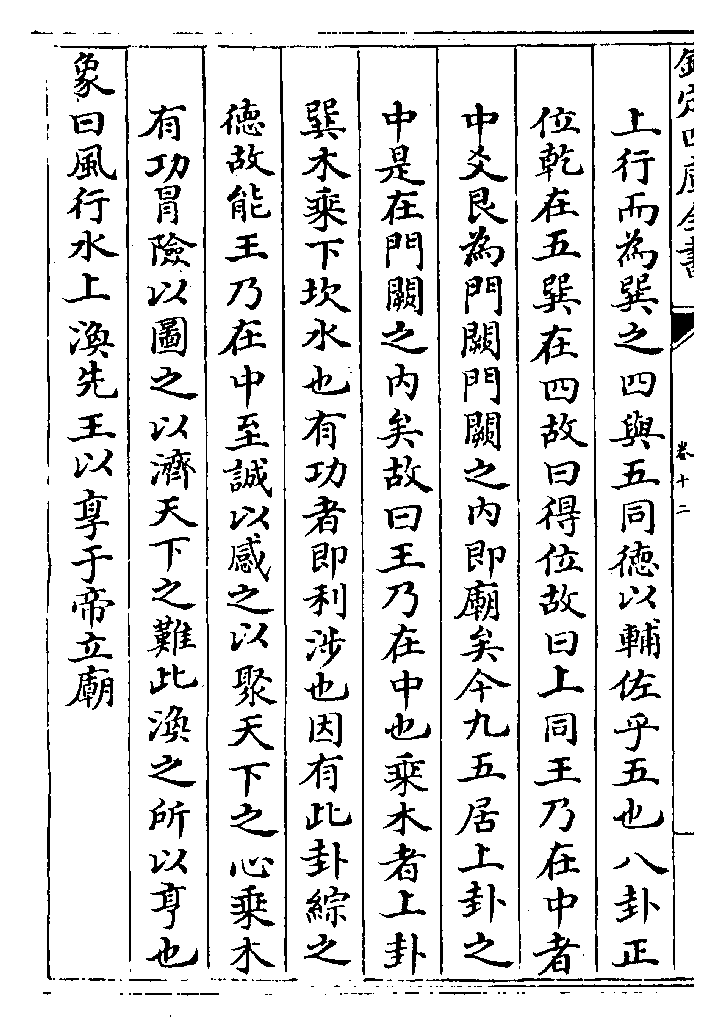 欽定四庫全書
卷十二
上行而為巽之四與五同德以輔佐乎五也八卦正
位乾在五巽在四故曰得位故曰上同王乃在中者
中爻艮為門闕門闕之內即廟矣今九五居上卦之
中是在門闕之內矣故曰王乃在中也乘木者上卦
巽木乘下坎水也有功者即利涉也因有此卦綜之
德故能王乃在中至誠以感之以聚天下之心乘木
有功冒險以圖之以濟天下之難此渙之所以亨也
象曰風行水上渙先王以享于帝立廟